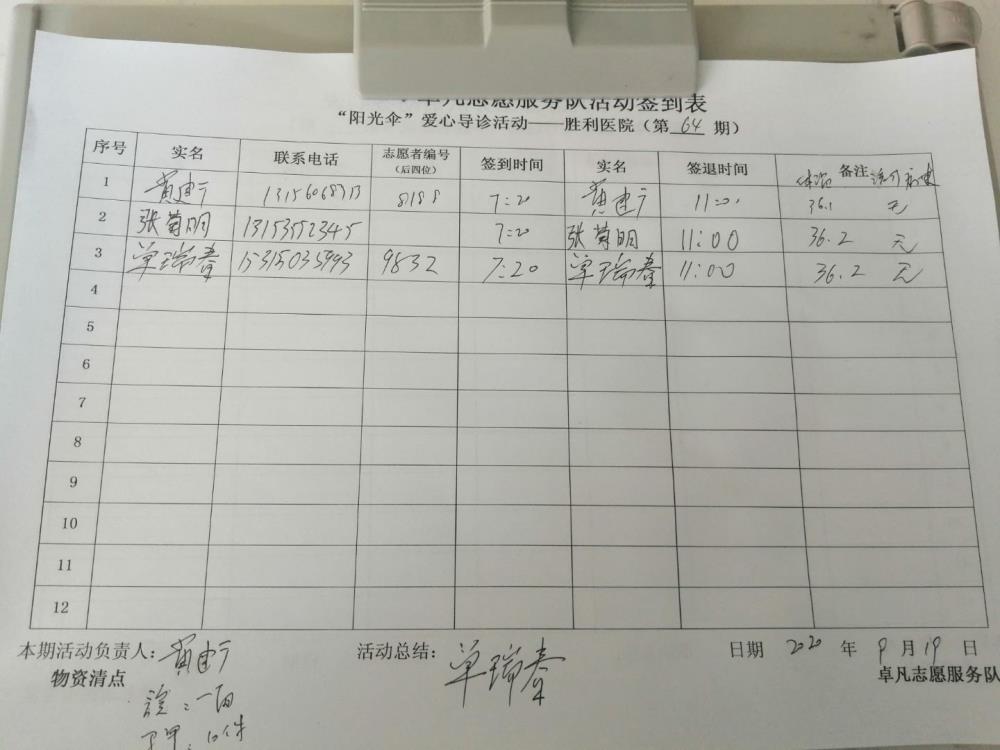 卓凡志愿服务队活动签到表
“阳光伞”爱心导诊活动——胜利医院（第 64 期）
序号 实名 联系电话 志愿者编号（后四位） 签到时间 实名 签退时间 备注 体温
1 黄建广 8188 7:20 黄建广 11:00 36.1 无
2 张菊明 13153552345 7:20 张菊明 11:00 36.2 无
3 单瑞春 15315035993 9832 7:20 单瑞春 11:00 36.2 无
4
5
6
7
8
9
10
11
12
本期活动负责人：黄建广 活动总结：单瑞春 日期 2020 年 9 月 19 日
物资清点 卓凡志愿服务队